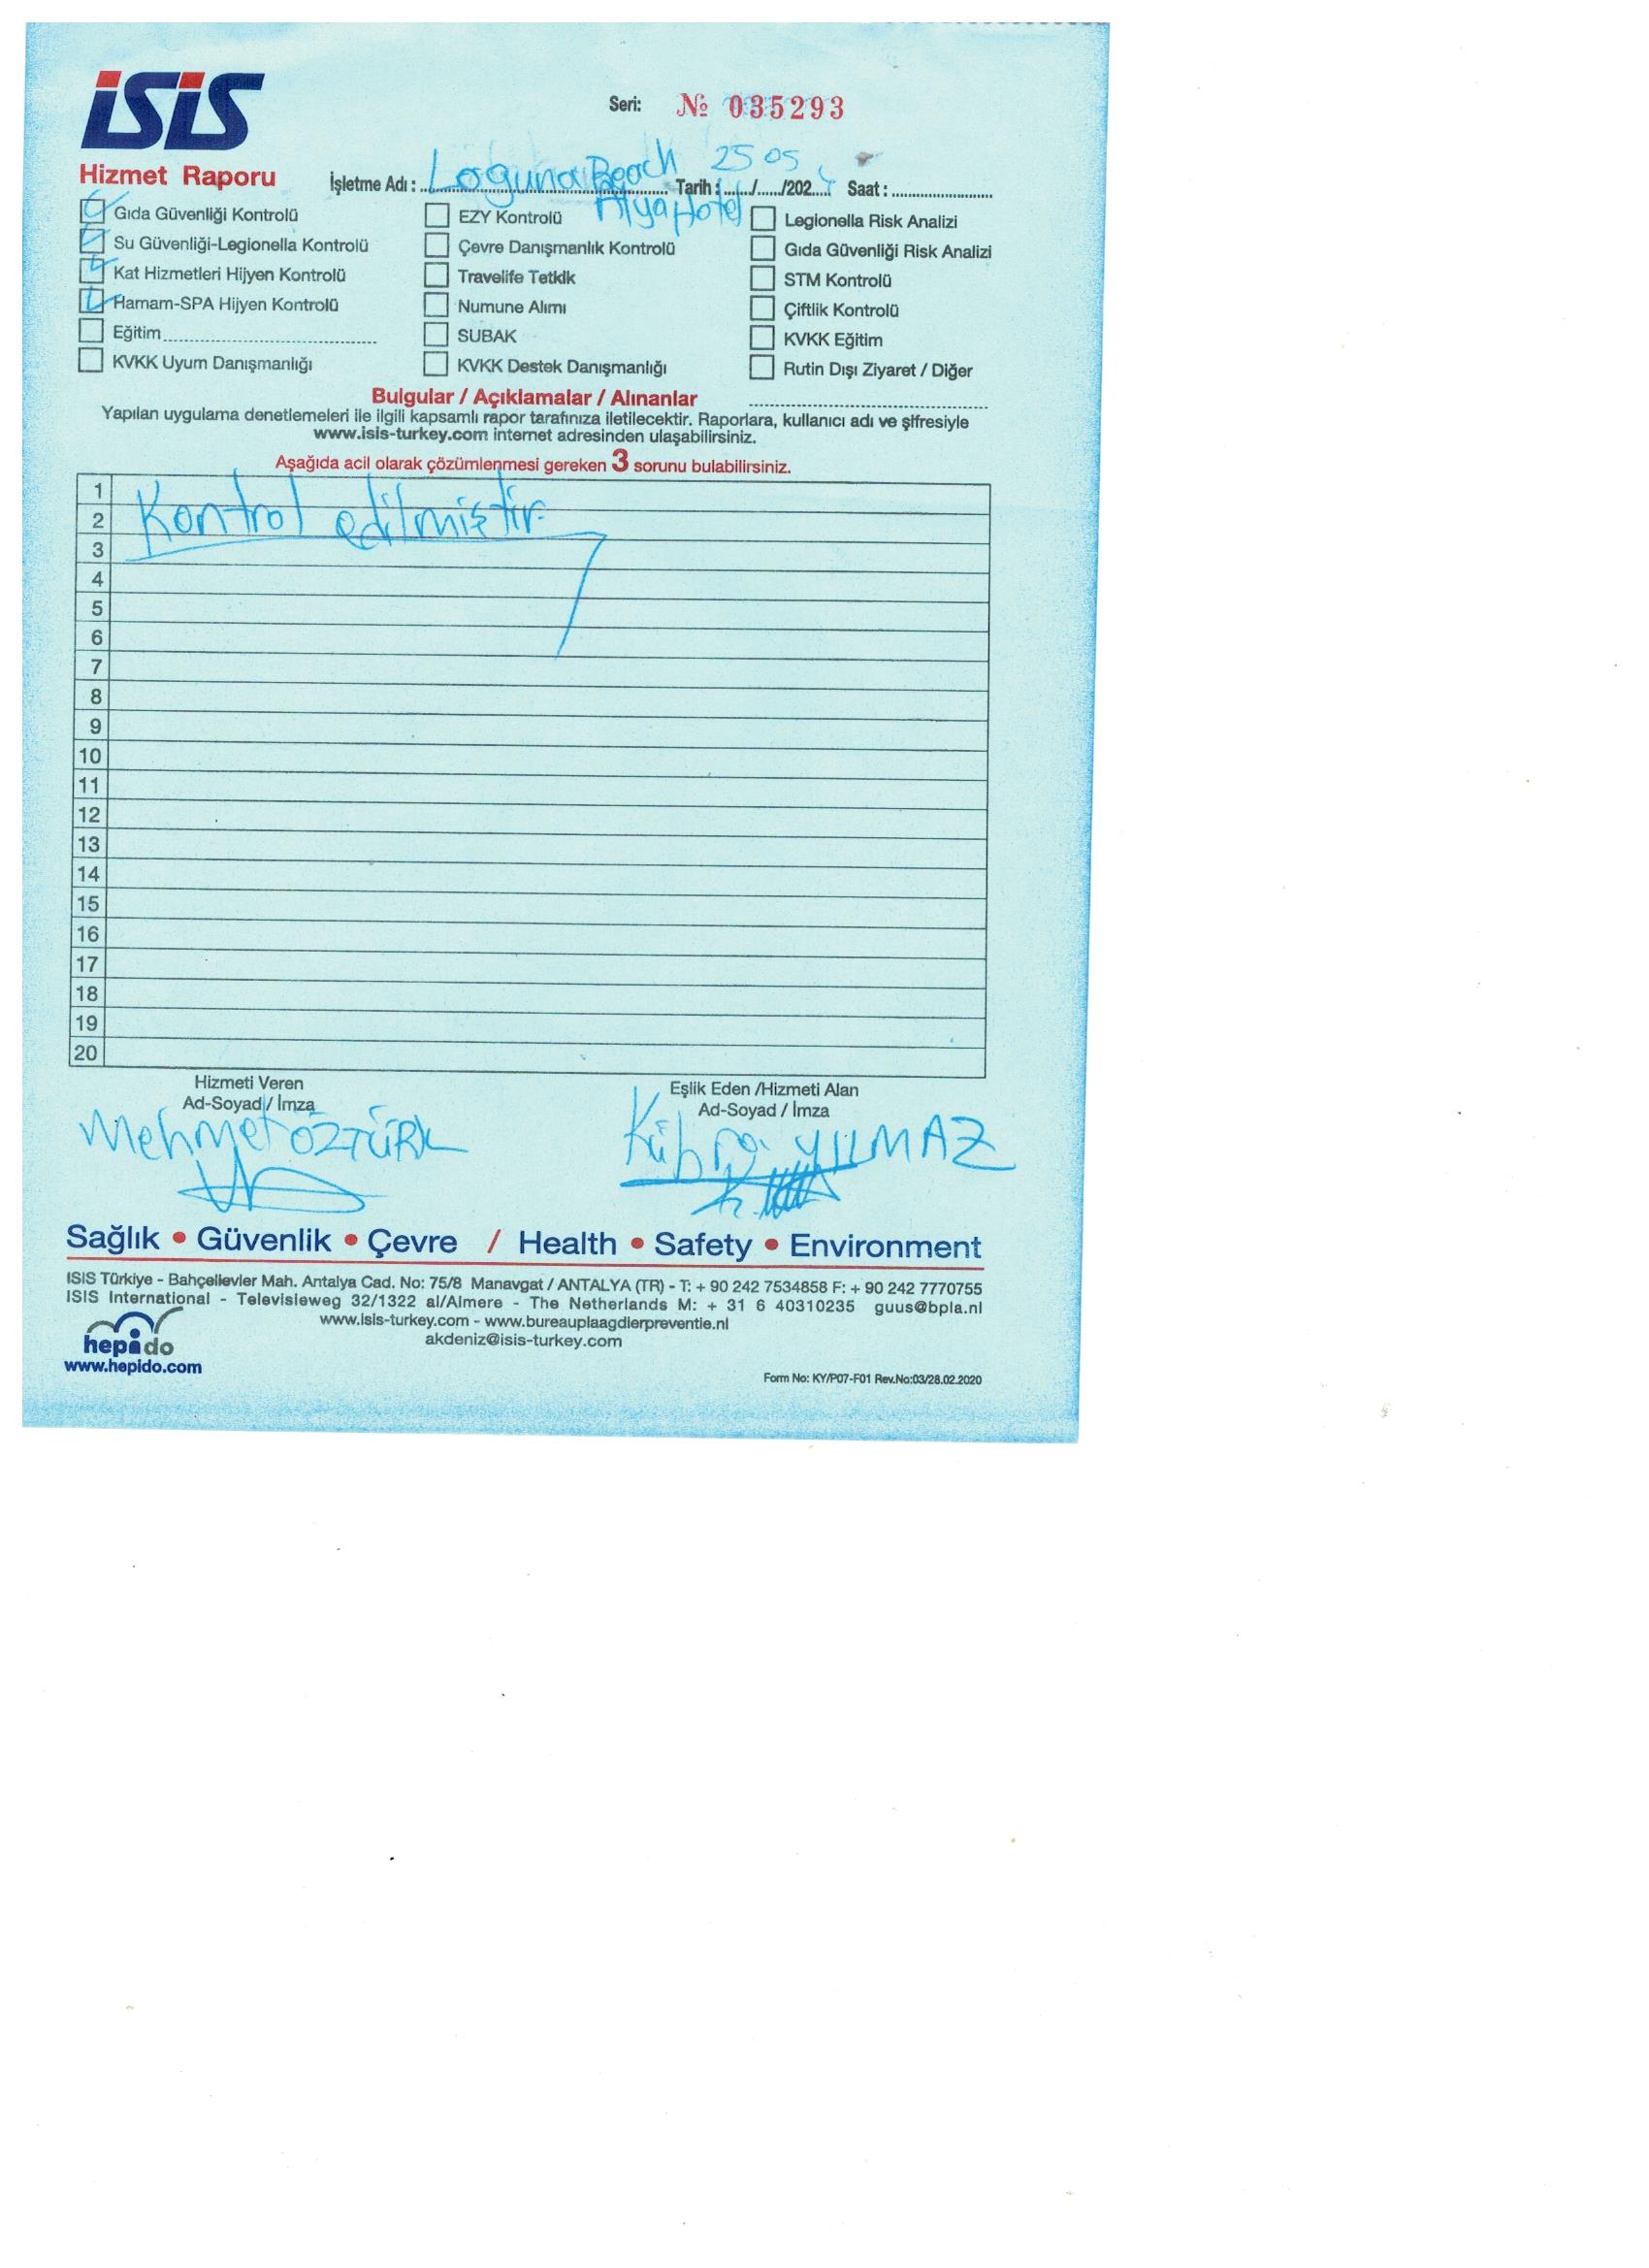 isis
Seri: № 035293
Hizmet Raporu
İşletme Adı : Laguna Beach Tarih : 25/05/2024 Saat :
Alya Hotel
Gıda Güvenliği Kontrolü
Su Güvenliği-Legionella Kontrolü
Kat Hizmetleri Hijyen Kontrolü
Hamam-SPA Hijyen Kontrolü
Eğitim
KVKK Uyum Danışmanlığı
EZY Kontrolü
Çevre Danışmanlık Kontrolü
Travelife Tetkik
Numune Alımı
SUBAK
KVKK Destek Danışmanlığı
Legionella Risk Analizi
Gıda Güvenliği Risk Analizi
STM Kontrolü
Çiftlik Kontrolü
KVKK Eğitim
Rutin Dışı Ziyaret / Diğer
Bulgular / Açıklamalar / Alınanlar
Yapılan uygulama denetlemeleri ile ilgili kapsamlı rapor tarafınıza iletilecektir. Raporlara, kullanıcı adı ve şifresiyle
www.isis-turkey.com internet adresinden ulaşabilirsiniz.
Aşağıda acil olarak çözümlenmesi gereken 3 sorunu bulabilirsiniz.
1
2 Kontrol edilmiştir.
3
4
5
6
7
8
9
10
11
12
13
14
15
16
17
18
19
20
Hizmeti Veren
Ad-Soyad / İmza
Mehmet ÖZTÜRK
Eşlik Eden /Hizmeti Alan
Ad-Soyad / İmza
Kübra YILMAZ
Sağlık • Güvenlik • Çevre / Health • Safety • Environment
ISIS Türkiye - Bahçelievler Mah. Antalya Cad. No: 75/8 Manavgat / ANTALYA (TR) - T: + 90 242 7534858 F: + 90 242 7770755
ISIS International - Televisieweg 32/1322 al/Almere - The Netherlands M: + 31 6 40310235 guus@bpla.nl
www.isis-turkey.com - www.bureauplaagdierpreventie.nl
akdeniz@isis-turkey.com
hepido
www.hepido.com
Form No: KY/P07-F01 Rev.No:03/28.02.2020